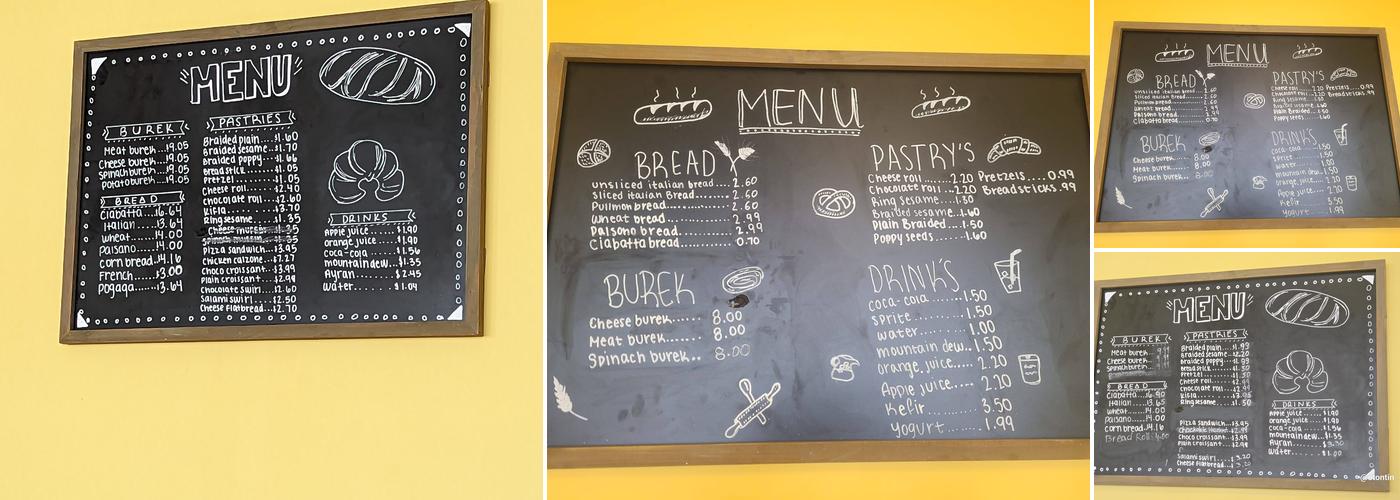 MENU
BUREK
Meat burek...19.05
Cheese burek...19.05
Spinach burek...19.05
potato burek...19.05
BREAD
Ciabatta...16.64
Italian...13.64
wheat...14.00
paisano...14.00
corn bread..14.16
French...13.00
pogaça...13.64
PASTRIES
Braided plain...$1.60
Braided sesame...$1.70
Braided poppy...$1.66
Bread stick...$1.05
Pretzel...$1.05
Cheese roll...$2.40
chocolate roll...$2.60
Kifla...$3.70
Ring sesame...$1.35
Pizza sandwich...$3.95
Chicken calzone...$7.27
Choco croissant...$3.99
Plain croissant...$2.99
Chocolate swirl...$2.60
Salami swirl...$2.50
Cheese flatbread...$2.70
DRINKS
Apple juice...$1.90
orange juice...$1.90
coca-cola...$1.56
mountain dew...$1.35
Ayran...$2.45
water...$1.04
MENU
BREAD
unsliced italian bread...2.60
Sliced italian Bread...2.60
Pullmon bread...2.60
Wheat bread...2.99
Palsono bread...2.99
Ciabatta bread...0.70
BUREK
Cheese burek......8.00
Meat burek......8.00
Spinach burek..8.00
PASTRY'S
Cheese roll...2.20 Pretzels....0.99
Chocolate roll...2.20 Breadsticks.99
Ring sesame...1.30
Braided sesame...1.60
Plain Braided...1.50
Poppy seeds...1.60
DRINK'S
coca-cola.......1.50
sprite.......1.50
water.......1.00
mountain dew..1.50
orange juice....2.20
Apple juice....2.20
Kefir.......3.50
yogurt.......1.99
MENU
BREAD
unsliced italian bread...2.60
Sliced italian Bread...2.60
Pullmon bread...2.60
Wheat bread...2.99
Palsono bread...2.99
Ciabatta bread...0.70
BUREK
Cheese burek...8.00
Meat burek...8.00
Spinach burek..8.00
PASTRY'S
Cheese roll...2.20 Pretzels....0.99
Chocolate roll...2.20 Breadsticks.99
Ring sesame
Plain Braided
Poppy seeds...1.60
DRINK'S
coca-cola...1.50
sprite...1.50
water...1.00
mountain dew..1.50
orange juice..2.20
Apple juice...2.20
Kefir...3.50
yogurt...1.99
MENU
BUREK
Meat burek
Cheese burek
Spinach burek
BREAD
Ciabatta
Italian...13.65
wheat...14.00
paisano...14.00
corn bread..14.16
Bread Roll
PASTRIES
Braided plain
Braided sesame...$2.20
Braided poppy
Bread stick
Pretzel
Cheese roll
chocolate roll
Kifla
Ring sesame...$1.50
Pizza sandwich...$3.95
Choco croissant...$3.99
Plain croissant
Salami swirl...$3.20
Cheese flatbread
DRINKS
Apple juice...$1.90
orange juice...$1.90
coca-cola...$1.56
mountain dew...$1.35
Ayran
water...$1.00